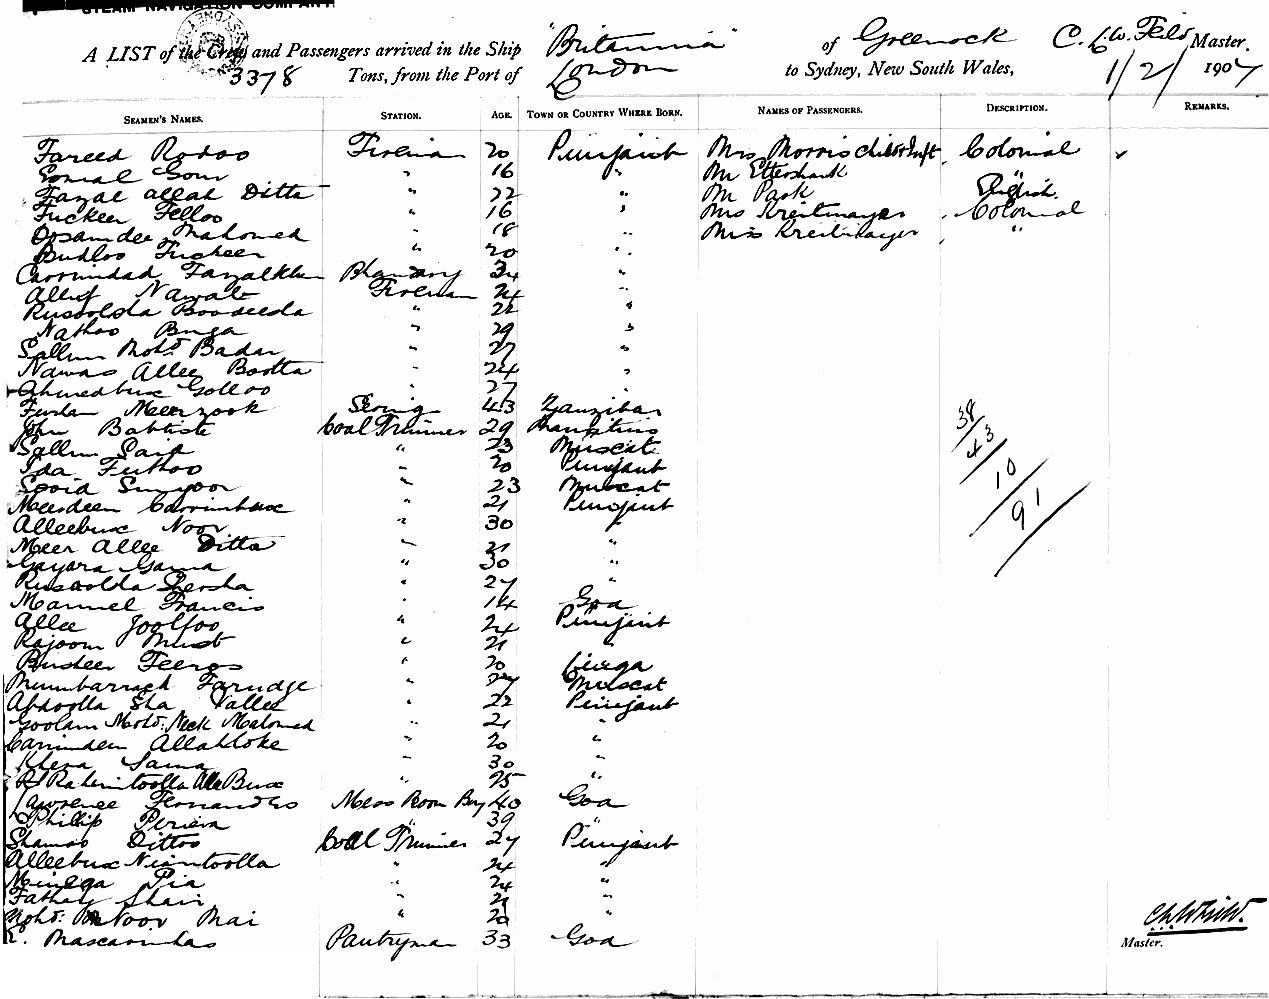 STEAM NAVIGATION COMPANY
A LIST of the Crew and Passengers arrived in the Ship "Britannia" of Greenock C. Master.
3378 Tons, from the Port of London to Sydney, New South Wales, 1/2/1907
SEAMEN'S NAMES. STATION. AGE. TOWN OR COUNTRY WHERE BORN. NAMES OF PASSENGERS. DESCRIPTION. REMARKS.
Fareed Fireman 20 Punjaub Mrs Morris child & Inft Colonial
16 " Mr Ettershank "
Fazal Allah Ditta " 22 " Mr Park English
Fuckeer Felloo " 16 " Mrs Kreitmayer Colonial
Mahomed " 18 " Miss Kreitmayer "
Budloo Fuckeer " 20 "
Carrimdad Fazalkhan Bhandary 34 "
Allif Nawab Fireman 24 "
Booseeda " 22 "
Nathoo " 29 "
Sallum Mohd Badar " 27 "
Nawab Allee Bootta " 24 "
Ahmedbux Golloo " 27 "
Meerzook Serang 43 Zanzibar
John Babtiste Coal Trimmer 29 Mauritius
Sallim Said " 23 Muscat
Ida Futhoo " 20 Punjaub
" 23 Muscat
Meerdeen Carrimbux " 21 Punjaub
Alleebux Noor " 30 "
Meer Allee Ditta " 21 "
Gama " 30 "
" 27 "
Manuel Francis " 14 Goa
Allee Joolfoo " 24 Punjaub
" 21 "
" 20
Mumbarrack " 27 Muscat
Abdoolla Sha Vallee " 22 Punjaub
Goolam Mohd: Neck Mahomed " 21 "
Carimdeen " 20 "
" 30 "
Rahimtoolla Alle Bux " 25 "
Lawrence Fernandes Mess Room Boy 40 Goa
Phillip " 39 "
Shamas Dittoo Coal Trimmer 27 Punjaub
Alleebux Niamtoolla " 24 "
" 24 "
Shair " 21 "
Mohd: Noor Mai " 20 "
E. Mascarinhas Pantryman 33 Goa
38
43
10
91
Master.